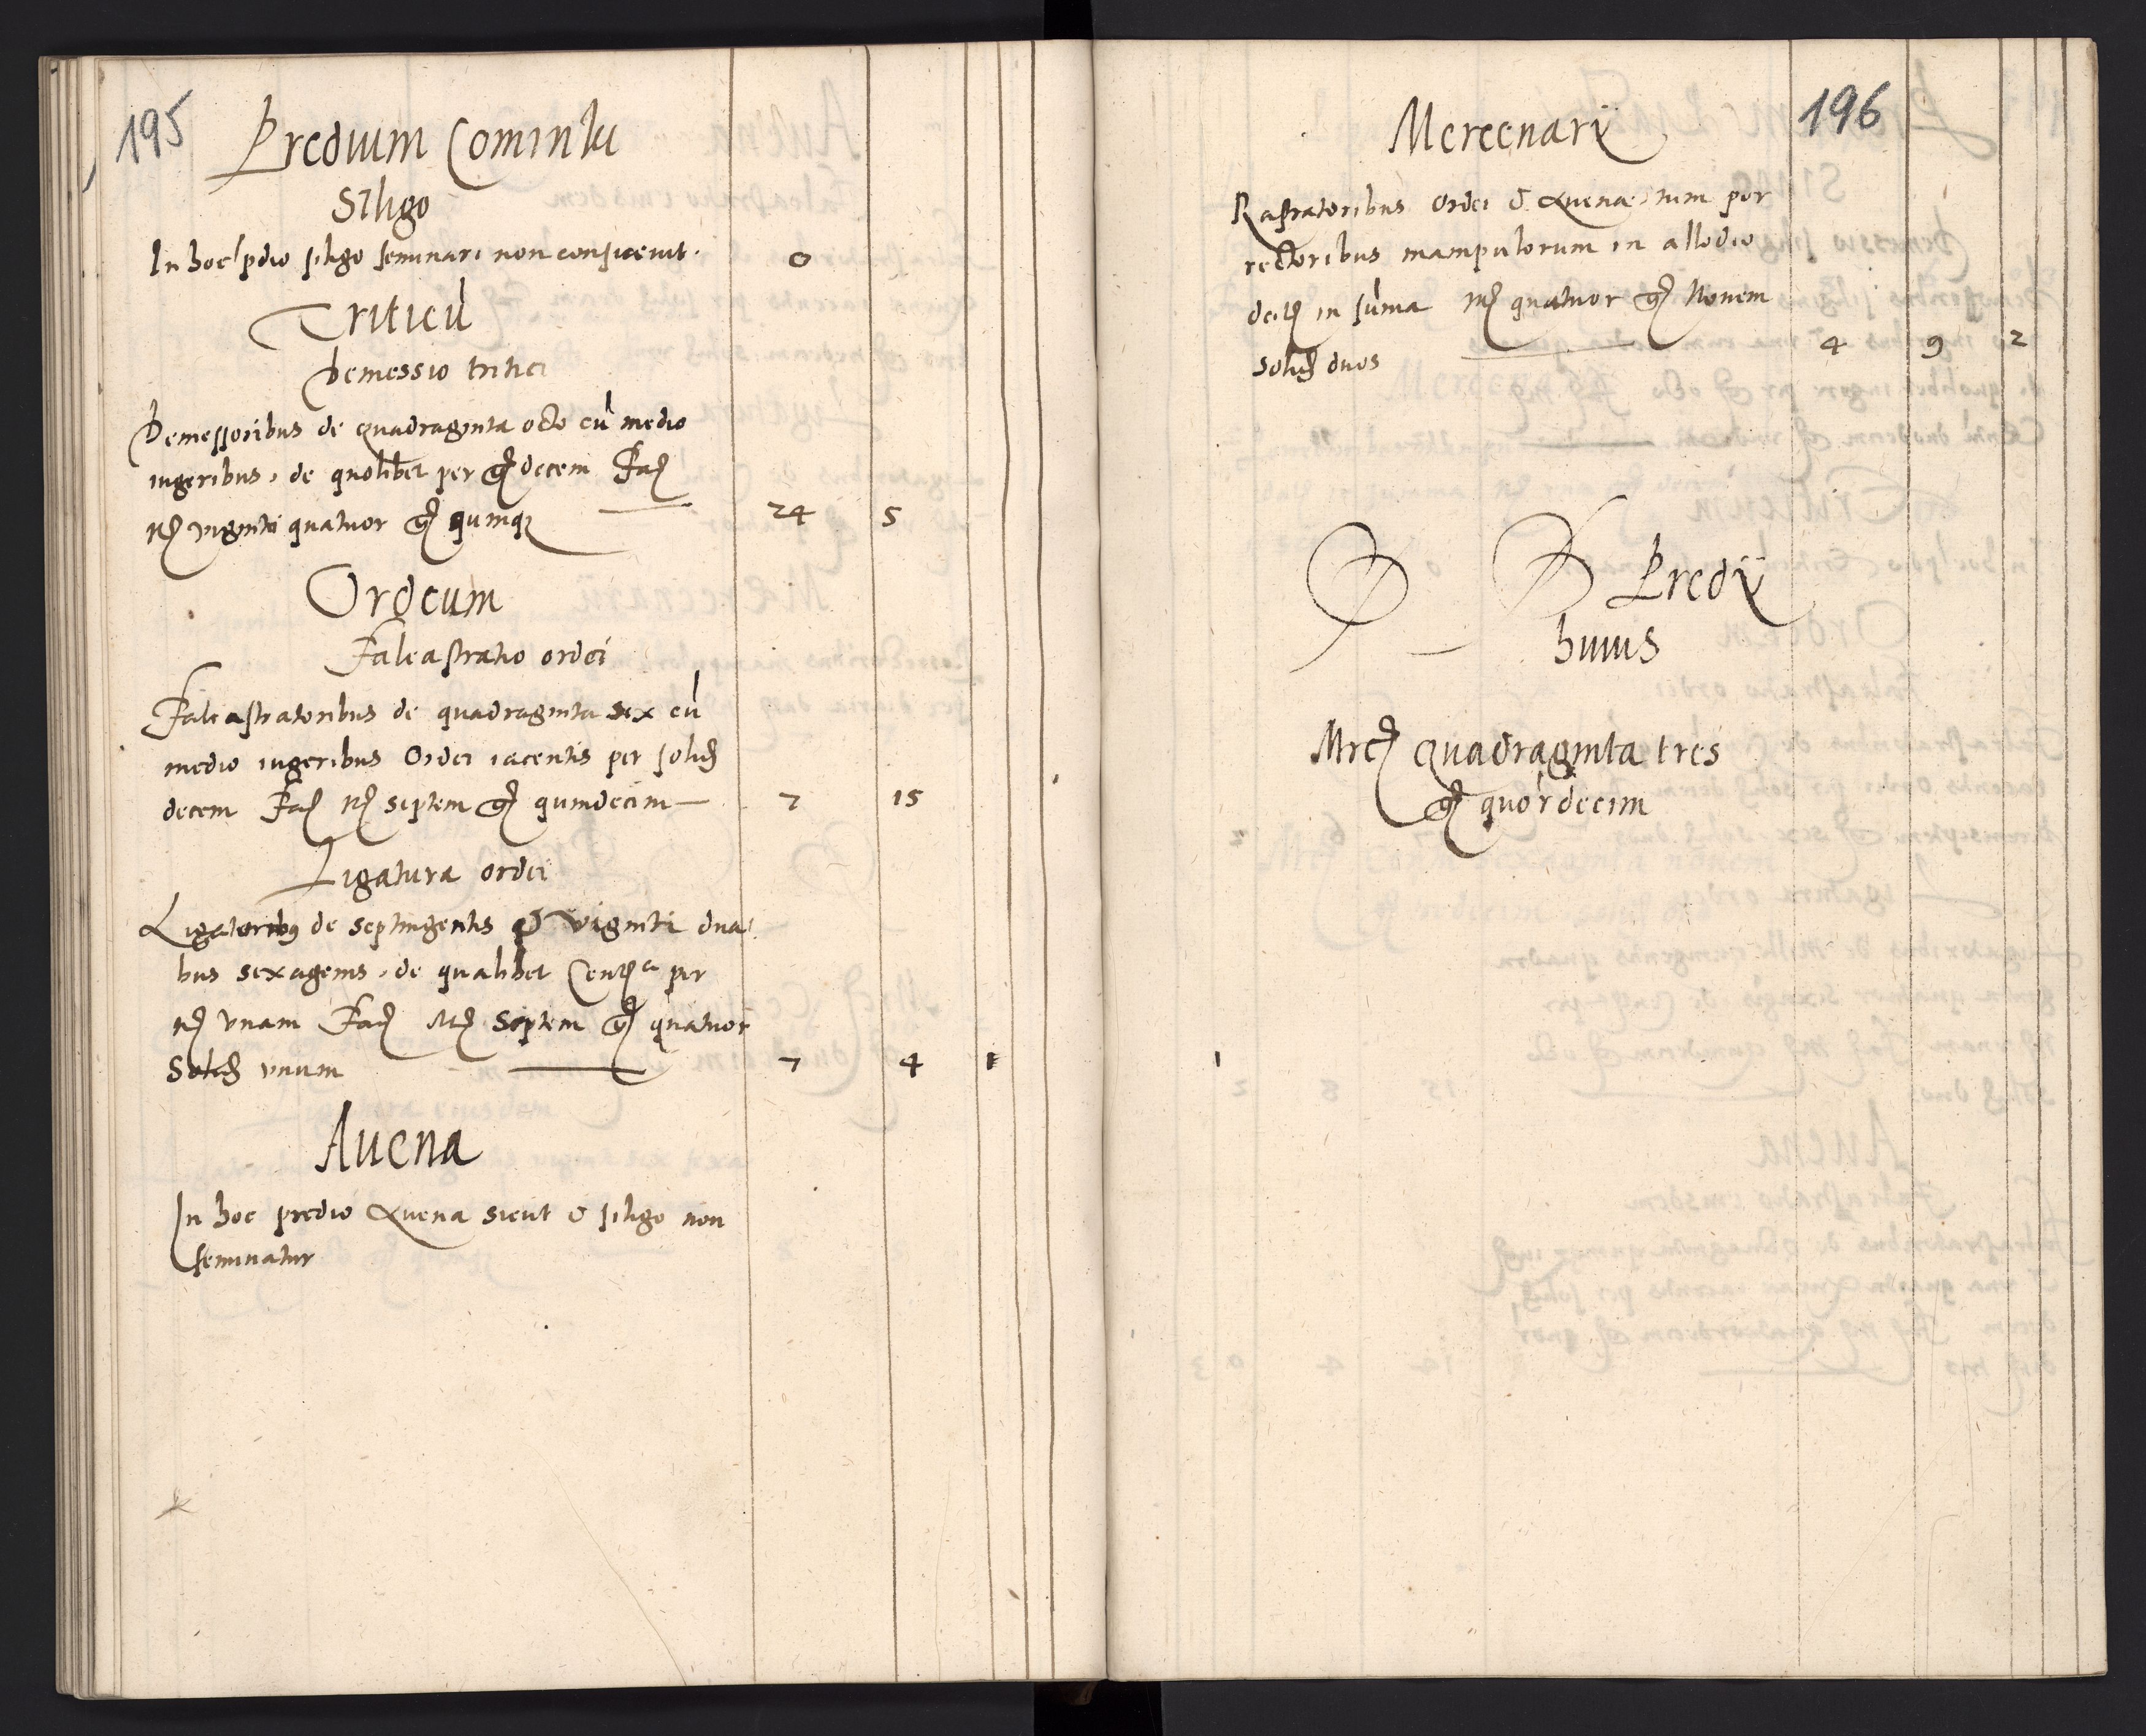 195
Predium Cominki
Siligo
In hoc pdio siligo seminari non consueuit. 0
Triticū
Demessio tritici
Demessoribus de quadraginta octo cū medio
iugeribus, de quolibet per gͬ decem Fac̄
mͬ viginti quatuor gͬ quinqꝫ 24 5
Ordeum
Falcastratio ordei
Falcastratoribus de quadraginta sex cū
medio iugeribus Ordei iacentis per solid
decem Fac̄ mͬ septem gͬ quindecim 7 15
Ligatura ordei
Ligatoribꝫ de septingentis & viginti dua
bus sexagenis, de qualibet per
mͬ vnam Fac̄ Mͬ Septem gͬ quatuor
Solid vnum 7 4 1
Auena
In hoc predio Auena sicut & siligo non
seminatur
196
Mercenarÿ
Rastratoribus Ordei & Auenae, tum por
rectoribus manipulorum in allodio
in sūma mͬ quatuor gͬ Nonem
Solid duos 4 9 2
Predÿ
huius
Mrc̄ quadraginta tres
gͬ quordecim
1